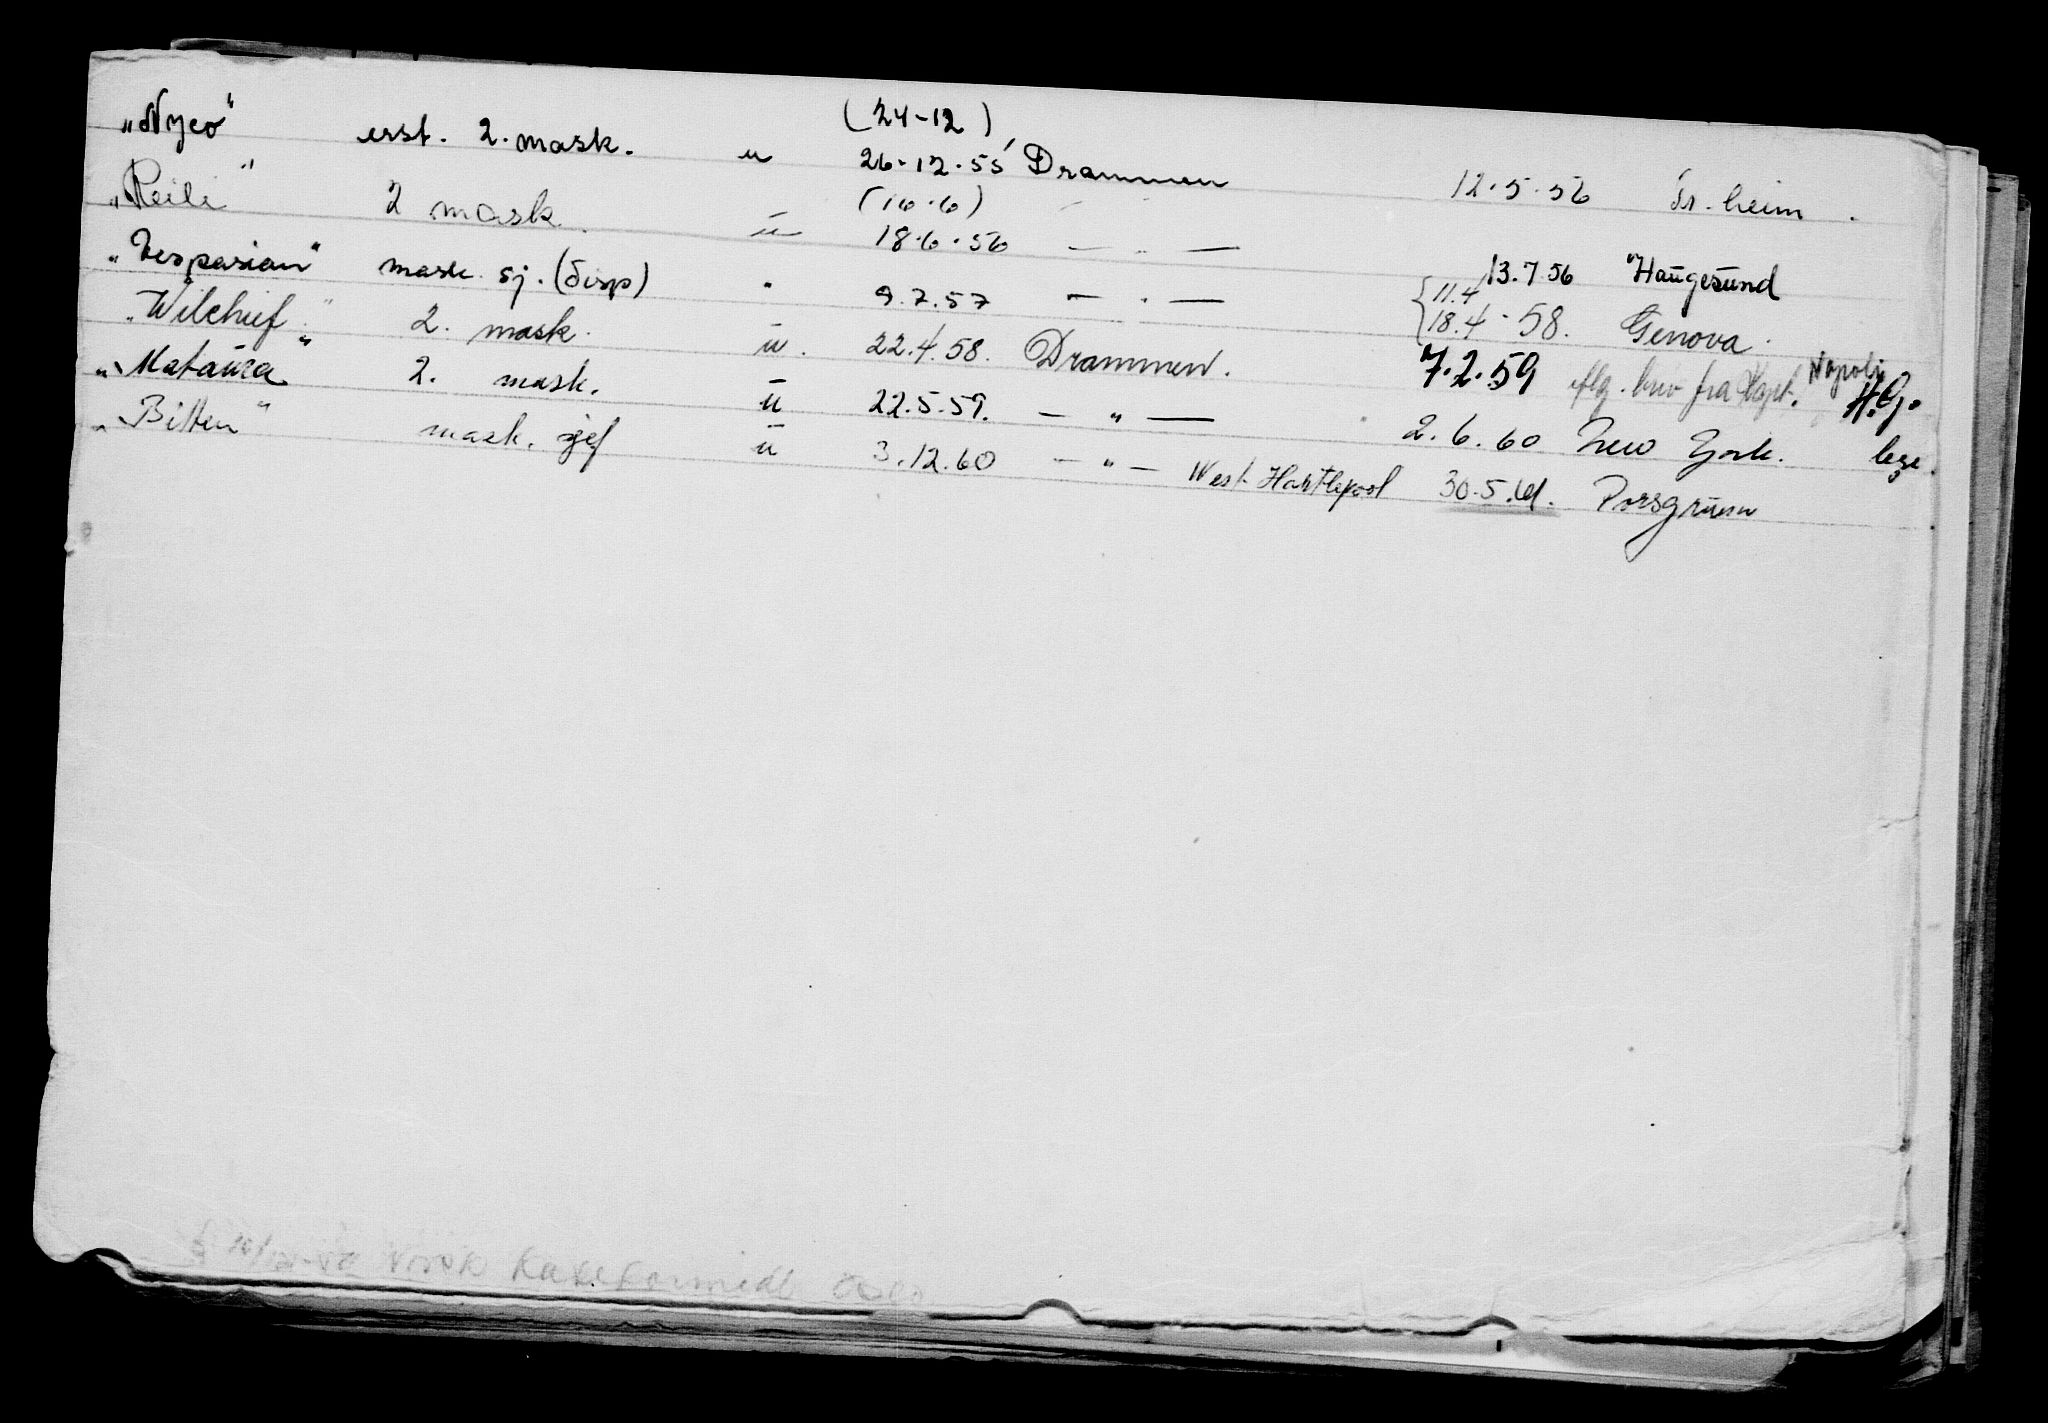 (24-12)
„Nyco" erst. 2. mask. u 26-12-55 Drammen 12.5.56 Tr.heim.
(16.6)
„Reili" 2 mask. u 18.6.56 — „ — 13.7.56 Haugesund
„Vespasian" mask. sj. (disp) " 9.7.57 — „ — {11.4 18.4-58. Genova.
„Wilchief" 2. mask. u. 22.4.58. Drammen. 7.2.59 iflg. brev fra Kapt. Napoli H.G.
„Mataura" 2. mask. u 22.5.59. — „ — 2.6.60 New York. lege.
„Bitten" mask. sjef u 3.12.60 — „ — West Hartlepool 30.5.61. Porsgrunn
Norsk Oslo